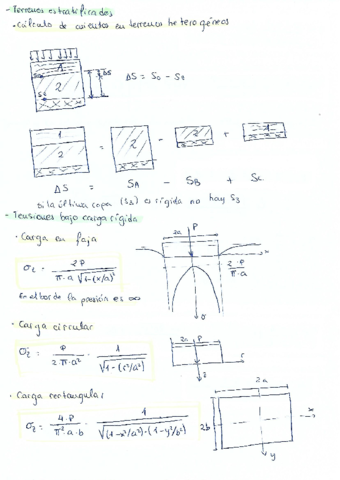 - Terrenos estratificados
• Cálculo de asientos en terrenos heterogéneos
1
2
ΔS
ΔS = S₀ - S₂
1
2
=
2
-
2
+
1
ΔS = S_A - S_B + S_C
Si la última capa es rígida no hay S₃
- Tensiones bajo carga rígida
• Carga en faja
σ_z = 2P / (π·a √(1-(x/a)²))
En el borde la presión es ∞
2a
P
x
2·P / π·a
σ
• Carga circular
σ_z = P / (2π·a²) · 1 / √(1-(r²/a²))
2a
P
r
z
• Carga rectangular
σ_z = 4·P / (π²·a·b) · 1 / √((1-x²/a²)·(1-y²/b²))
2a
2b
x
y